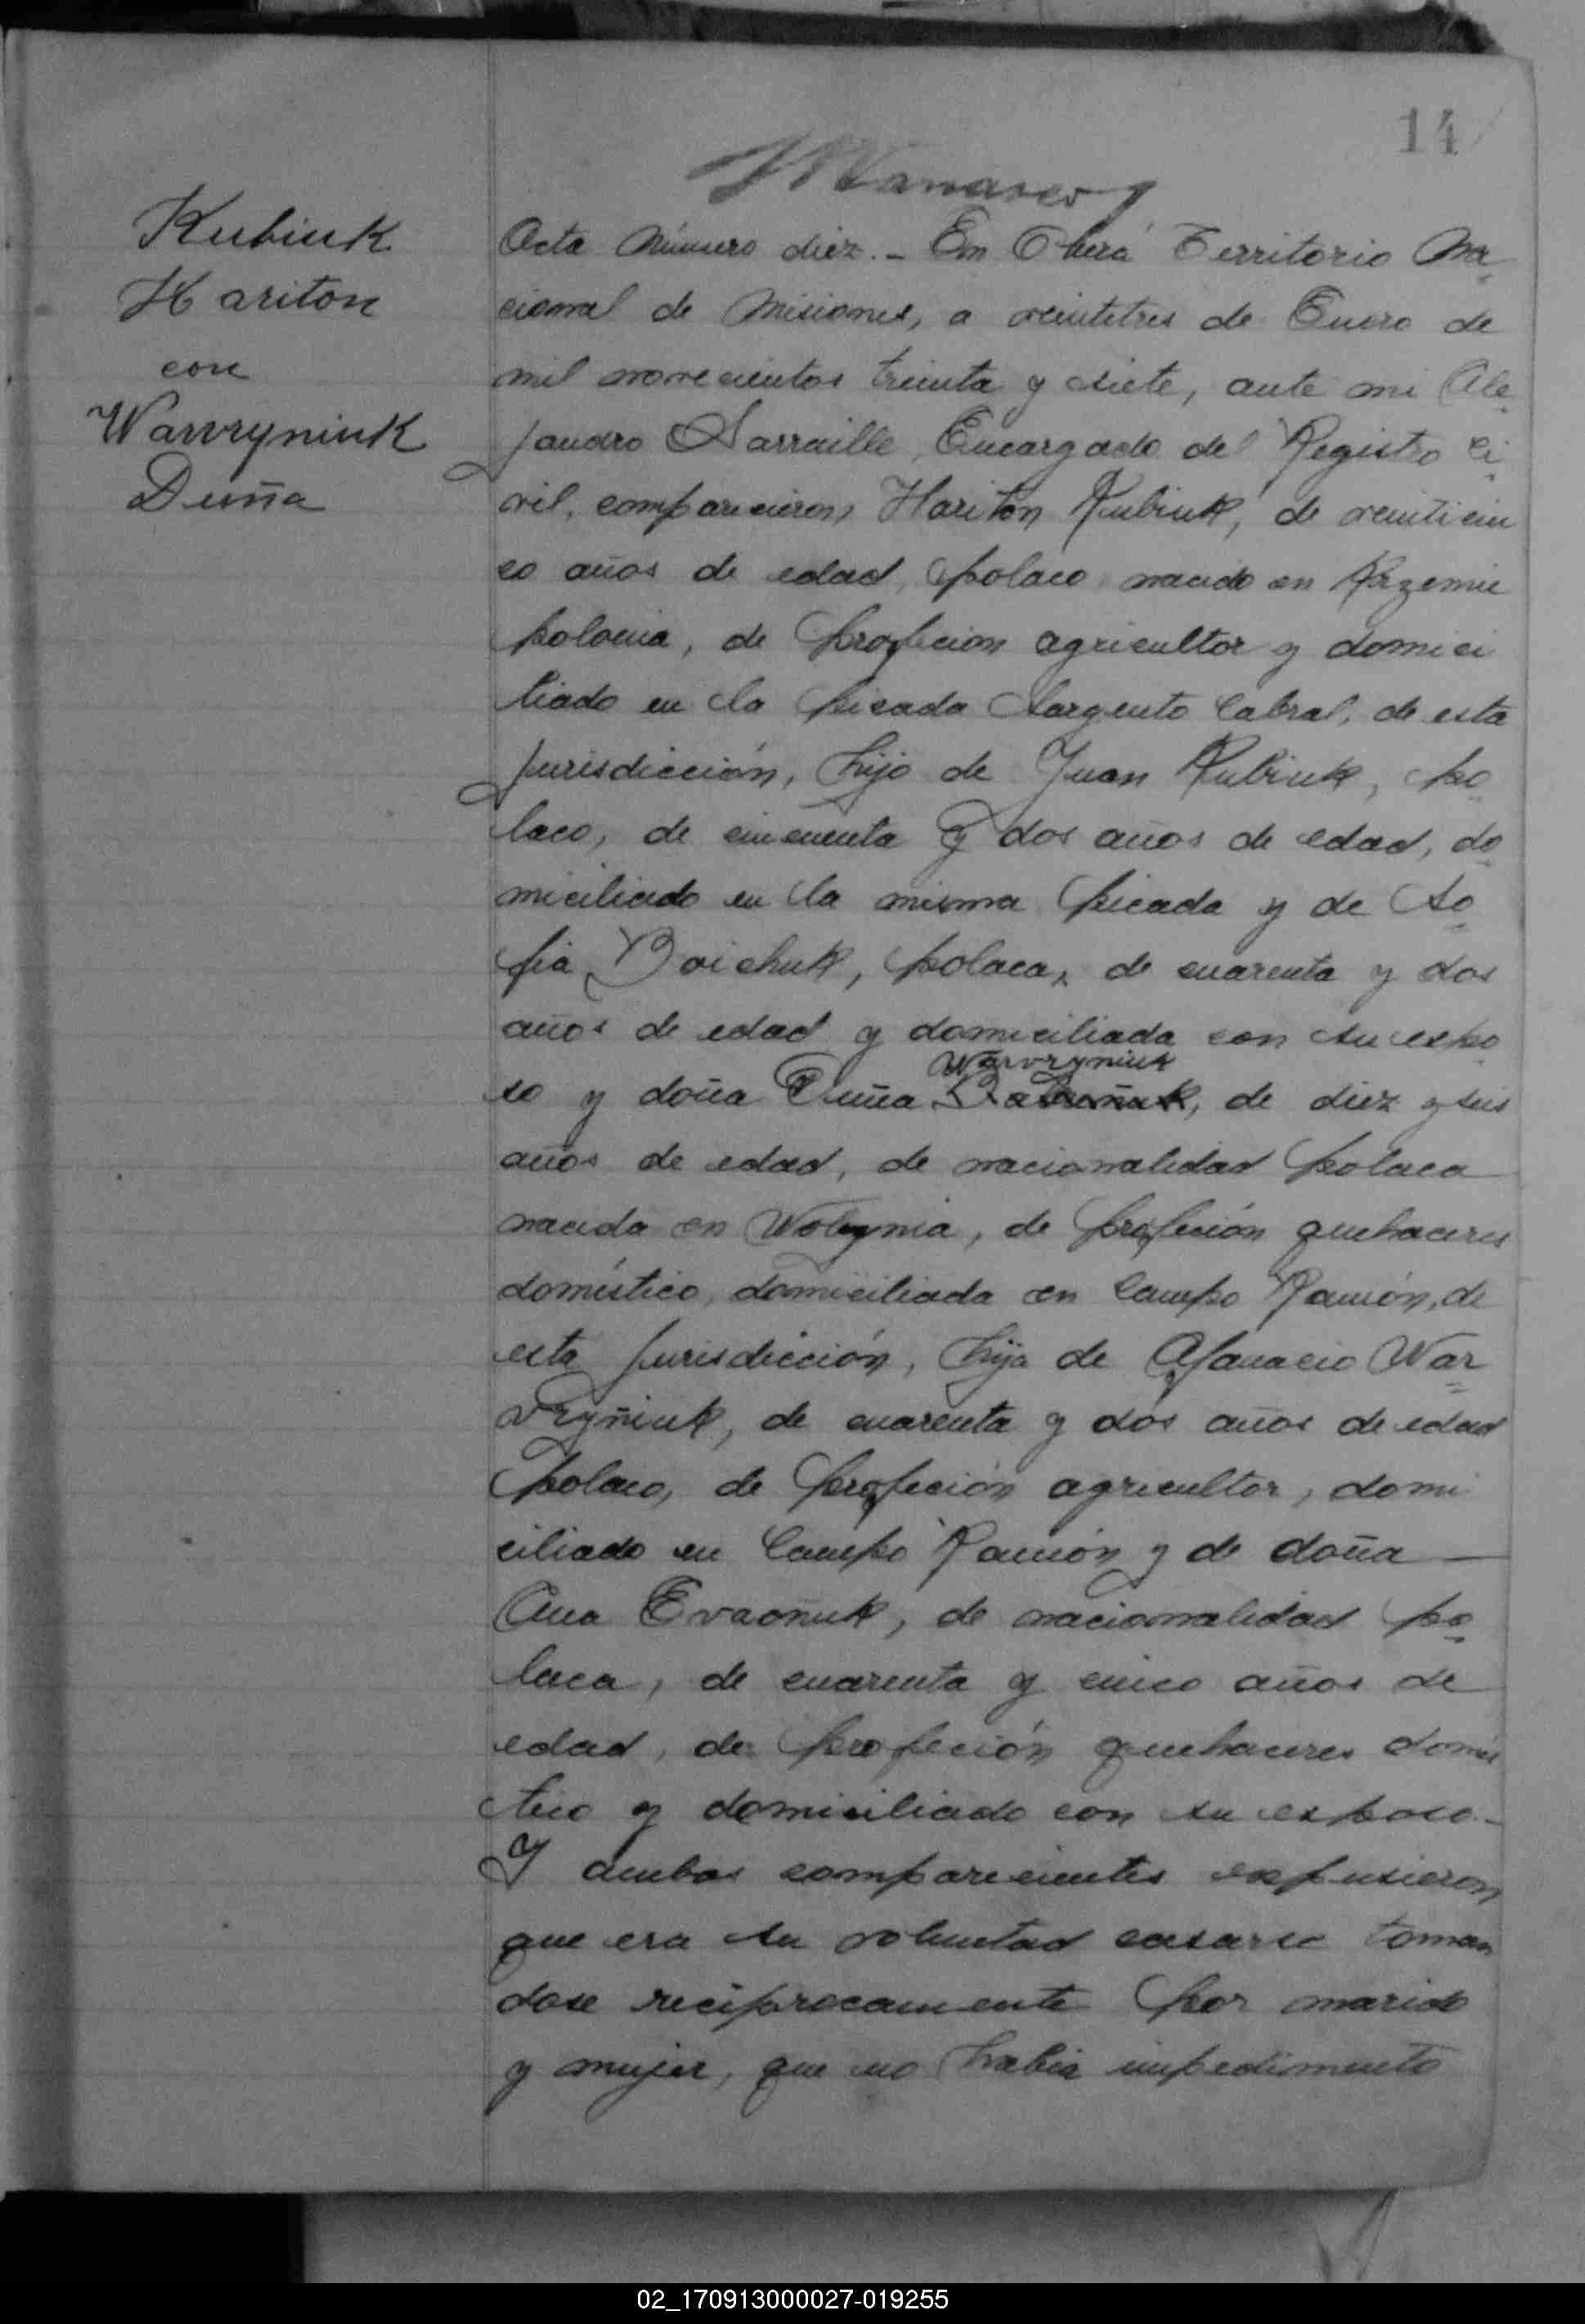 14
Kubiuk
Hariton
con
Warvryniuk
Duña
Acta Número diez.- En Oberá Territorio Na
cional de Misiones, a veintetres de Enero de
mil novecientos treinta y siete, ante mi Ale
jandro Sarraille, Encargado del Registro Ci
vil, comparecieron Hariton Kubiuk, de veinticin
co años de edad, polaco nacido en Krzemie
polonia, de profecion agricultor y domici
liado en la picada Sargento Cabral, de esta
jurisdicción, hijo de Juan Kubiuk, po
laco, de cincuenta y dos años de edad, do
miciliado en la misma picada y de So
fia Boichuk, polaca, de cuarenta y dos
años de edad y domiciliada con su espo
Warvryniuk
so y doña Duña, de diez y seis
años de edad, de nacionalidad polaca
nacida en Wolynia, de profeción quehaceres
doméstico, domiciliada en Campo Ramón, de
esta jurisdicción, hija de Afanacio War
vryñiuk, de cuarenta y dos años de edad
polaco, de profeción agricultor, domi
ciliado en Campo Ramón y de doña
Ana Evaoñuk, de nacionalidad po
laca, de cuarenta y cinco años de
edad, de profeción quehaceres domés
tico y domiciliado con su esposo.-
Y ambos comparecientes expusieron
que era su voluntad casarse toman
dose reciprocamente por marido
y mujer, que no habia impedimento
02_170913000027-019255